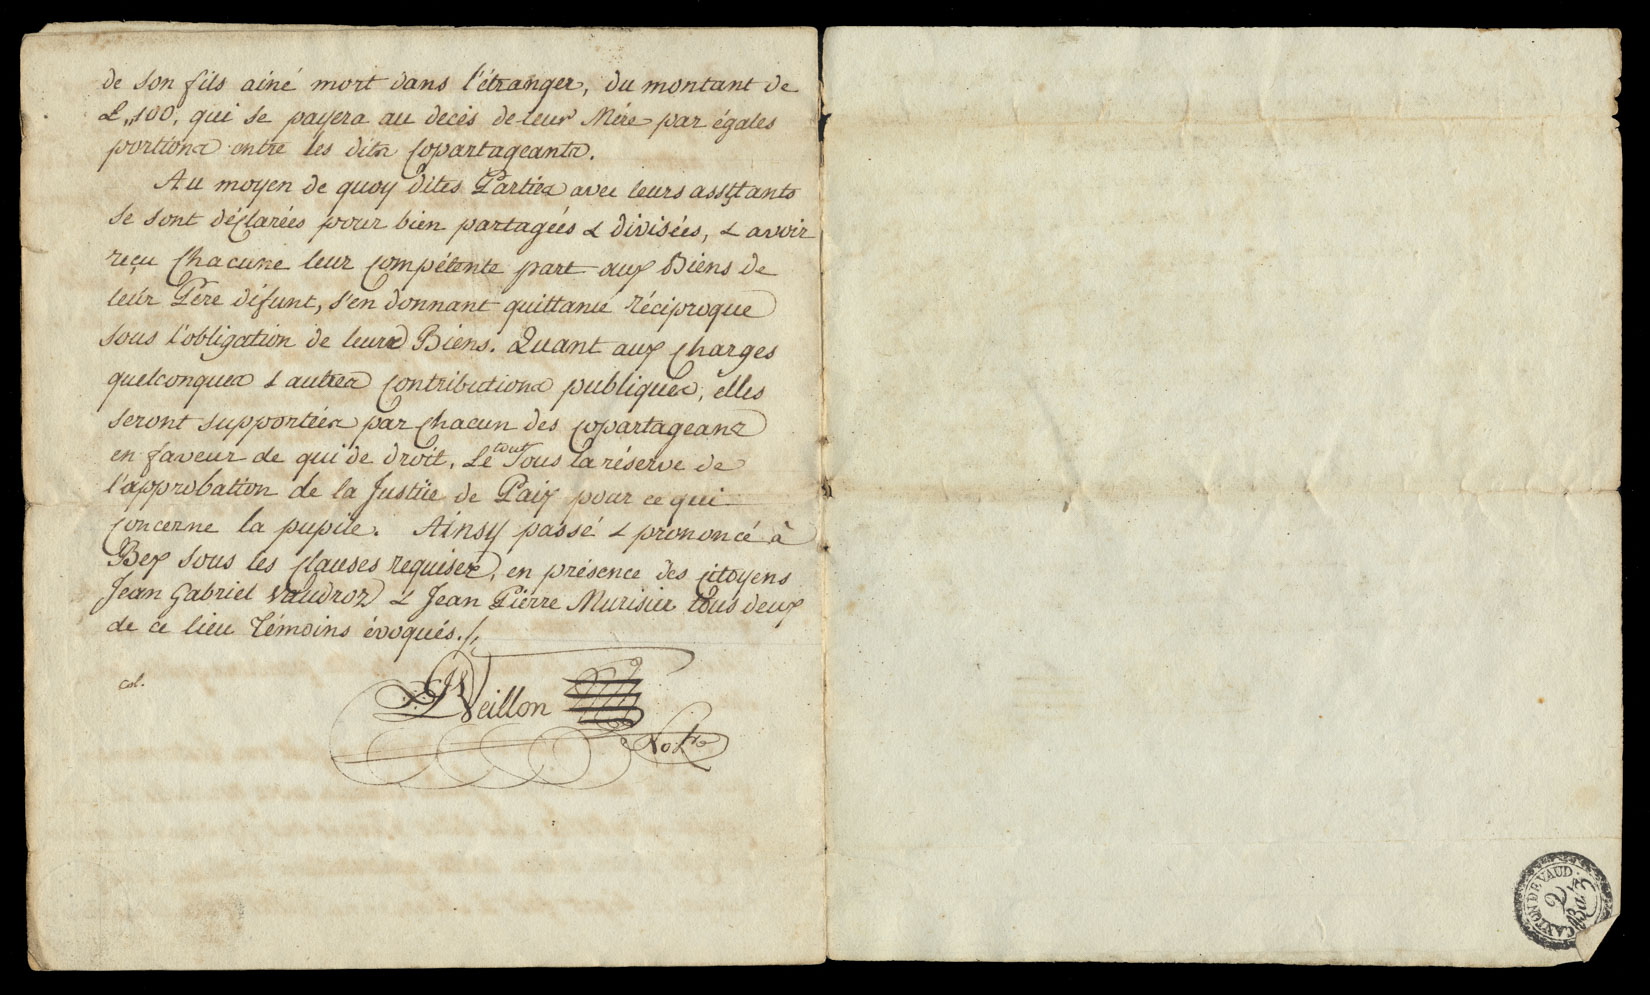 de son fils ainé mort dans l'étranger, du montant de
£„100, qui se payera au decès de leur Mére par égales
portions entre les dits Copartageants.
Au moyen de quoy dites Parties avec leurs assistants
se sont déclarées pour bien partagées & divisées, & avoir
reçu Chacune leur compétente part aux Biens de
leur Pére défunt, s'en donnant quittance réciproque
sous l'obligation de leurs Biens. Quant aux Charges
quelconques & autres Contributions publiques, elles
seront supportées par chacun des copartageans
en faveur de qui de droit, Le tout sous la réserve de
l'approbation de la Justice de Paix pour ce qui
concerne la pupile. Ainsy passé & prononcé à
Bex sous les Clauses requises, en présence des Citoyens
Jean Gabriel Vaudroz & Jean Pierre Murisier tous deux
de ce lieu témoins évoqués./.
col.
Veillon
Not.re
CANTON DE VAUD.
2
Baz